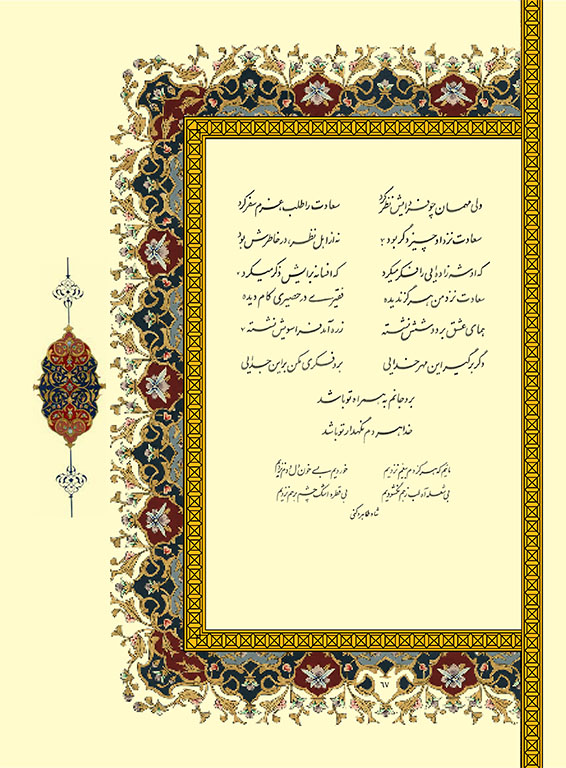 ولی مهمان چو فردایش نظر کرد سعادت را طلب، عزم سفر کرد
سعادت نزد او چیز دگر بود نه از اهل نظر، در خاطرش بود
که او شهزاده‌ایی را فکر میکرد که افسانه برایش ذکر میکرد
سعادت نزد من هرگز ندیده فقیری در حصیری کام دیده
همای عشق بر دوشش نشسته ز ره آمد فراسویش نشسته
دگر برگیر این مهر خدایی برو فکری مکن بر این جدایی
برو جانم به همراه تو باشد
خدا هر دم نگهدار تو باشد
مائیم که هرگز دم بیغم نزدیم خوردیم بسی خون دل و دم نزدیم
بی شعله آه لب ز هم نگشودیم بی قطره اشک چشم بر هم نزدیم
شاه طاهر دکنی
۶۷